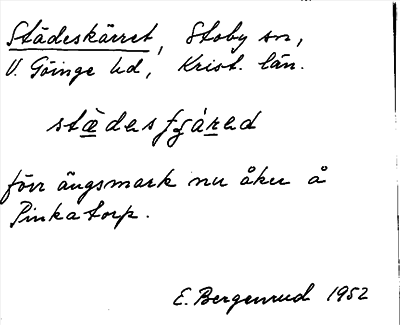 Städeskärret, Stoby sn,
V. Göinge hd, Krist. län.
förr ängsmark nu åker å
Pinkatorp.
E. Bergenrud 1952